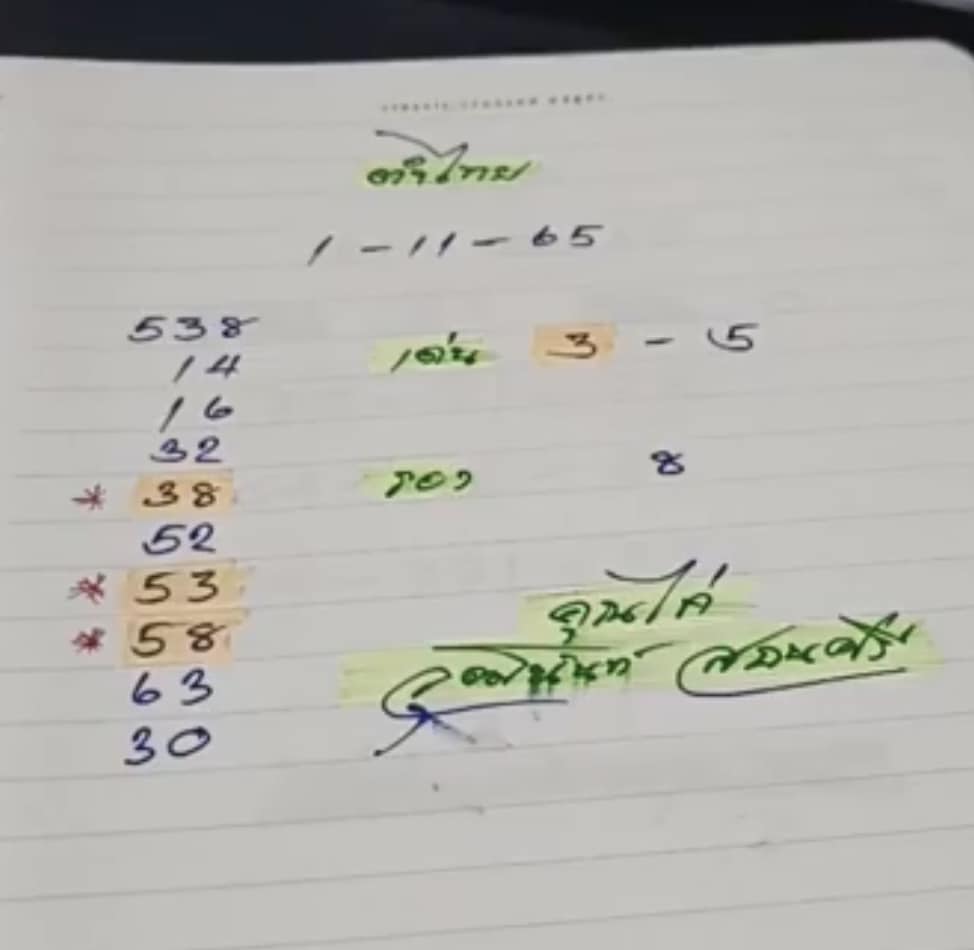 1-11-65
538
14
16
32
* 38
52
* 53
* 58
63
30
เด่น 3 - 5
รอง 8
คุณไก่